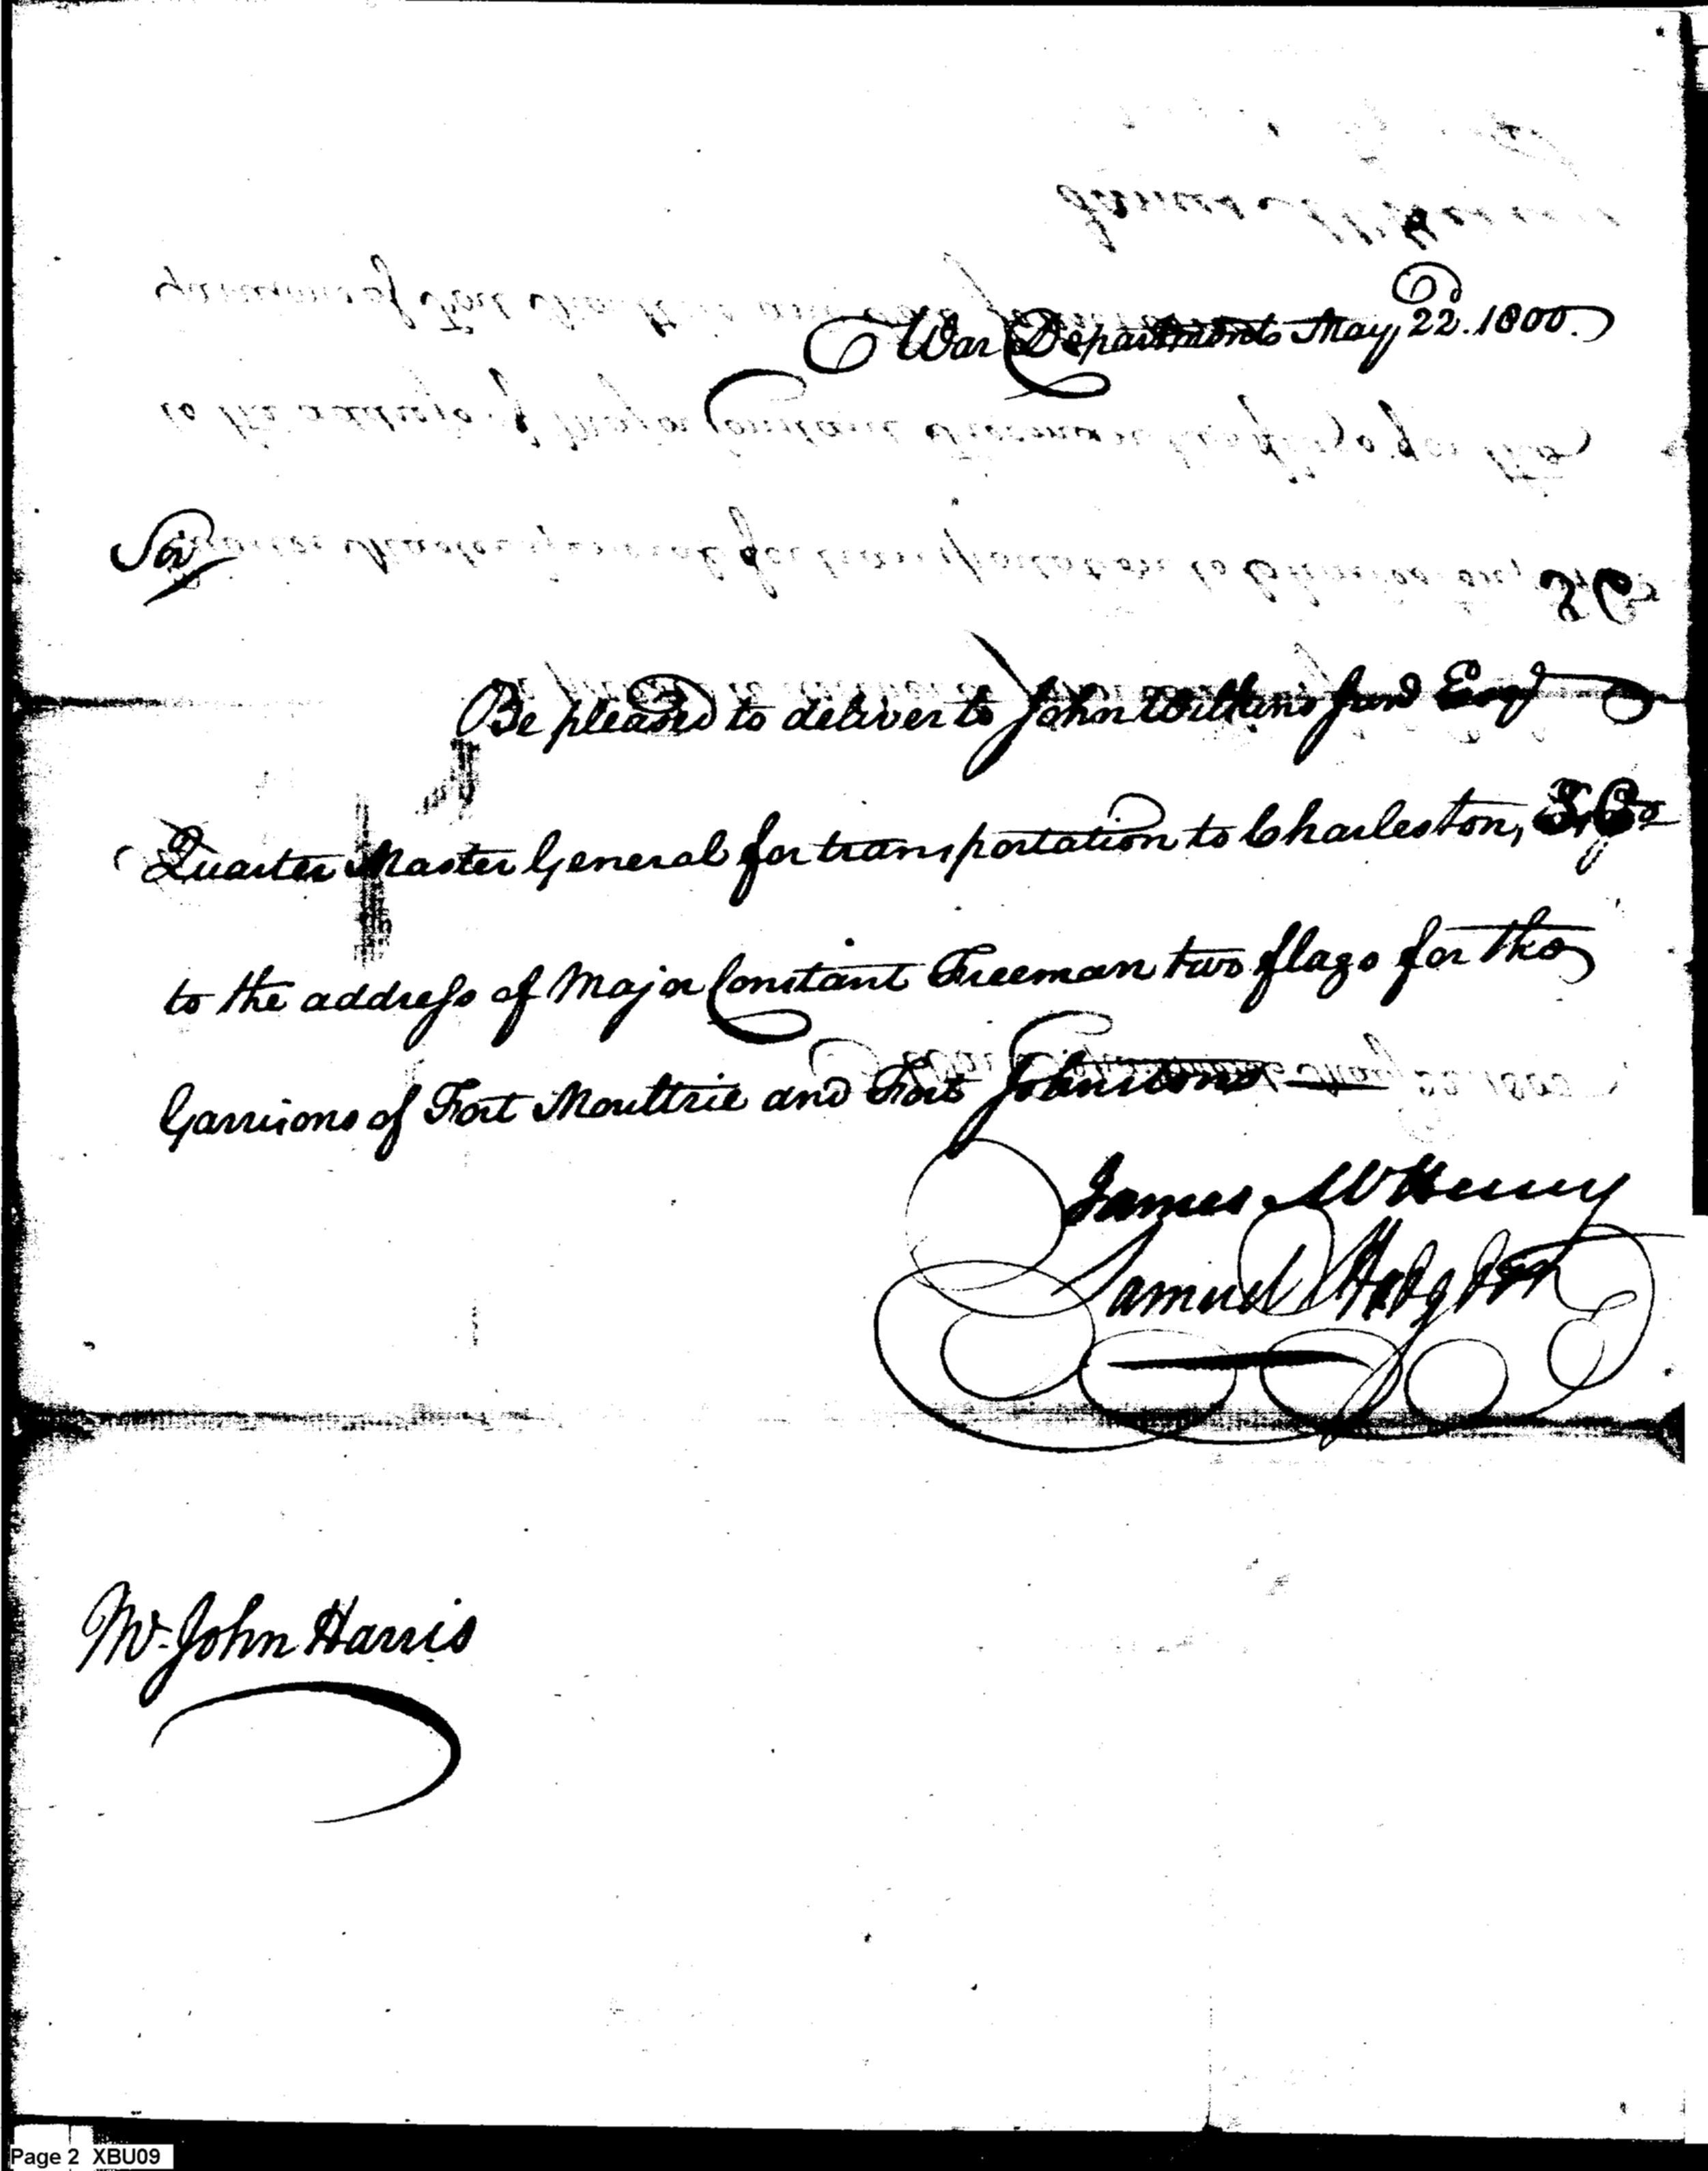 War Department May 22d. 1800.
Sir
Be pleased to deliver to John Wilkins Junr Esqr
Quarter Master General for transportation to Charleston, S, Ca
to the address of Major Constant Freeman two flags for the
Garrisons of Fort Moultrie and Fort Johnston
James McHenry
Samuel Hodgdon
Mr. John Harris
Page 2 XBU09